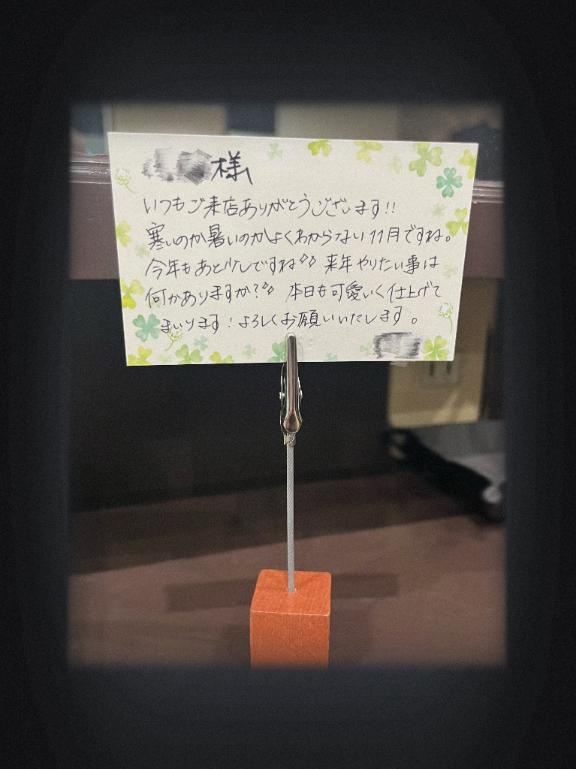 様
いつもご来店ありがとうございます!!
寒いのか暑いのかよくわからない11月ですね。
今年もあと少しですね♪♪ 来年やりたい事は
何かありますか?♪ 本日も可愛いく仕上げて
まいります!よろしくお願いいたします。